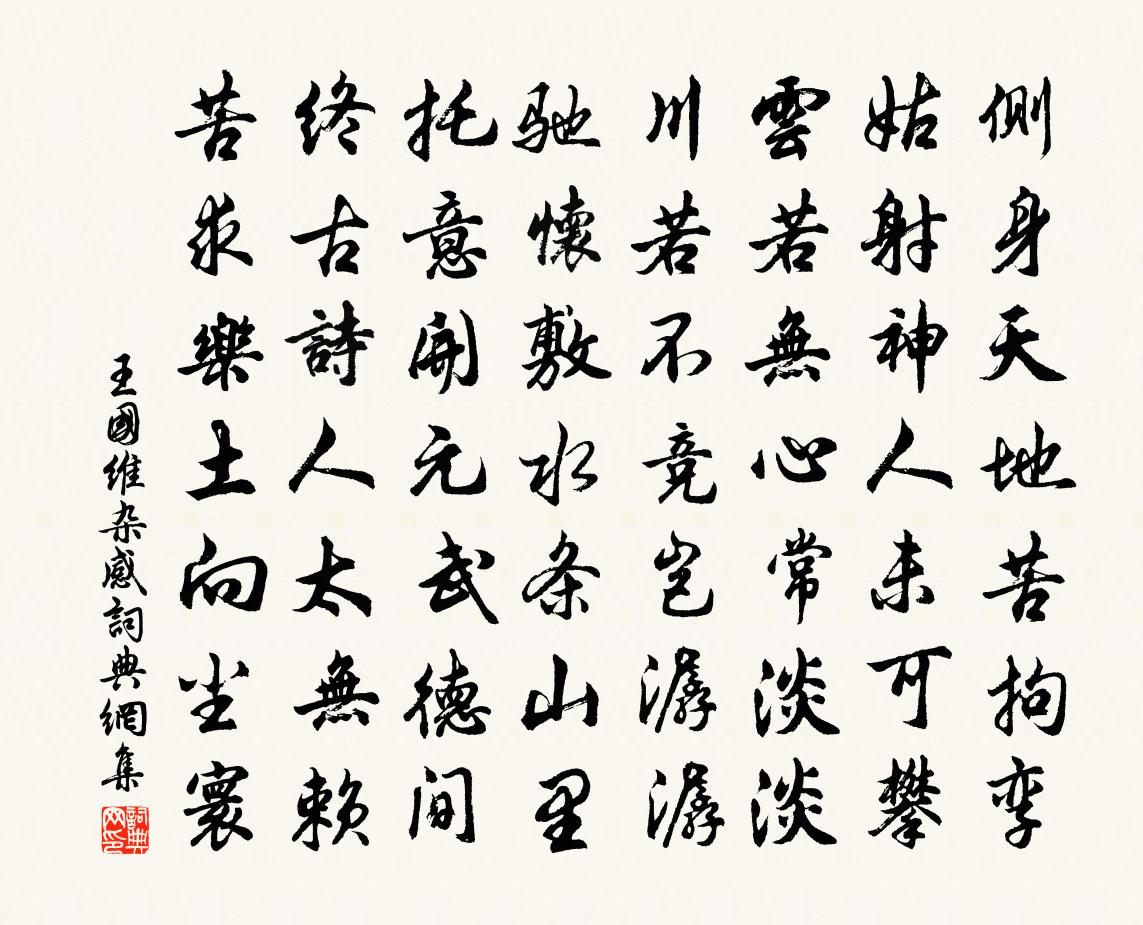 側身天地苦拘孪
姑射神人未可攀
雲若無心常淡淡
川若不竞岂潺潺
驰懷敷水条山里
托意開元武德间
终古詩人太無赖
苦求樂土向尘寰
王國维杂感詞典網集
詞典网印